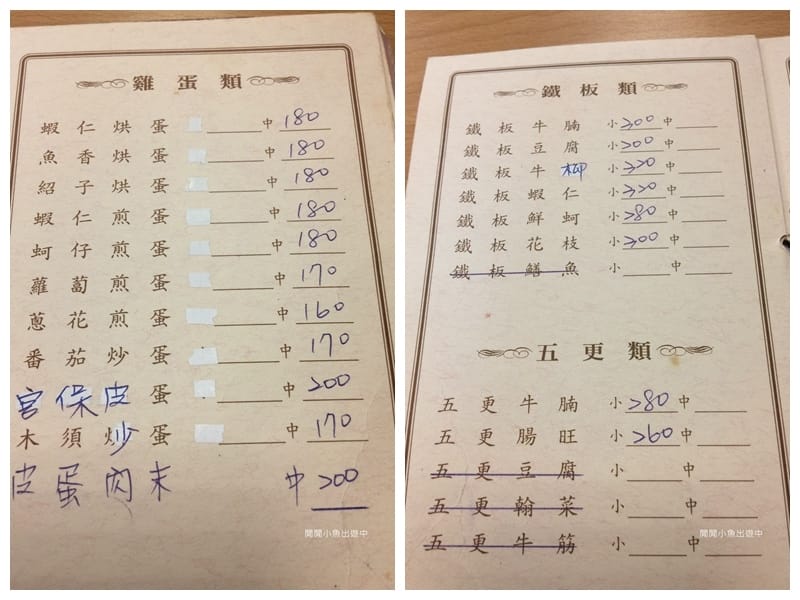 雞蛋類
蝦仁烘蛋 中 180
魚香烘蛋 中 180
紹子烘蛋 中 180
蝦仁煎蛋 中 180
蚵仔煎蛋 中 180
蘿蔔煎蛋 中 170
蔥花煎蛋 中 160
番茄炒蛋 中 170
宮保皮蛋 中 200
木須炒蛋 中 170
皮蛋肉末 中 200
閒閒小魚出遊中
鐵板類
鐵板牛腩 小 200 中
鐵板豆腐 小 200 中
鐵板牛柳 小 220 中
鐵板蝦仁 小 220 中
鐵板鮮蚵 小 280 中
鐵板花枝 小 200 中
鐵板鱔魚 小 中
五更類
五更牛腩 小 280 中
五更腸旺 小 260 中
五更豆腐 小 中
五更翰菜 小 中
五更牛筋 小 中
閒閒小魚出遊中